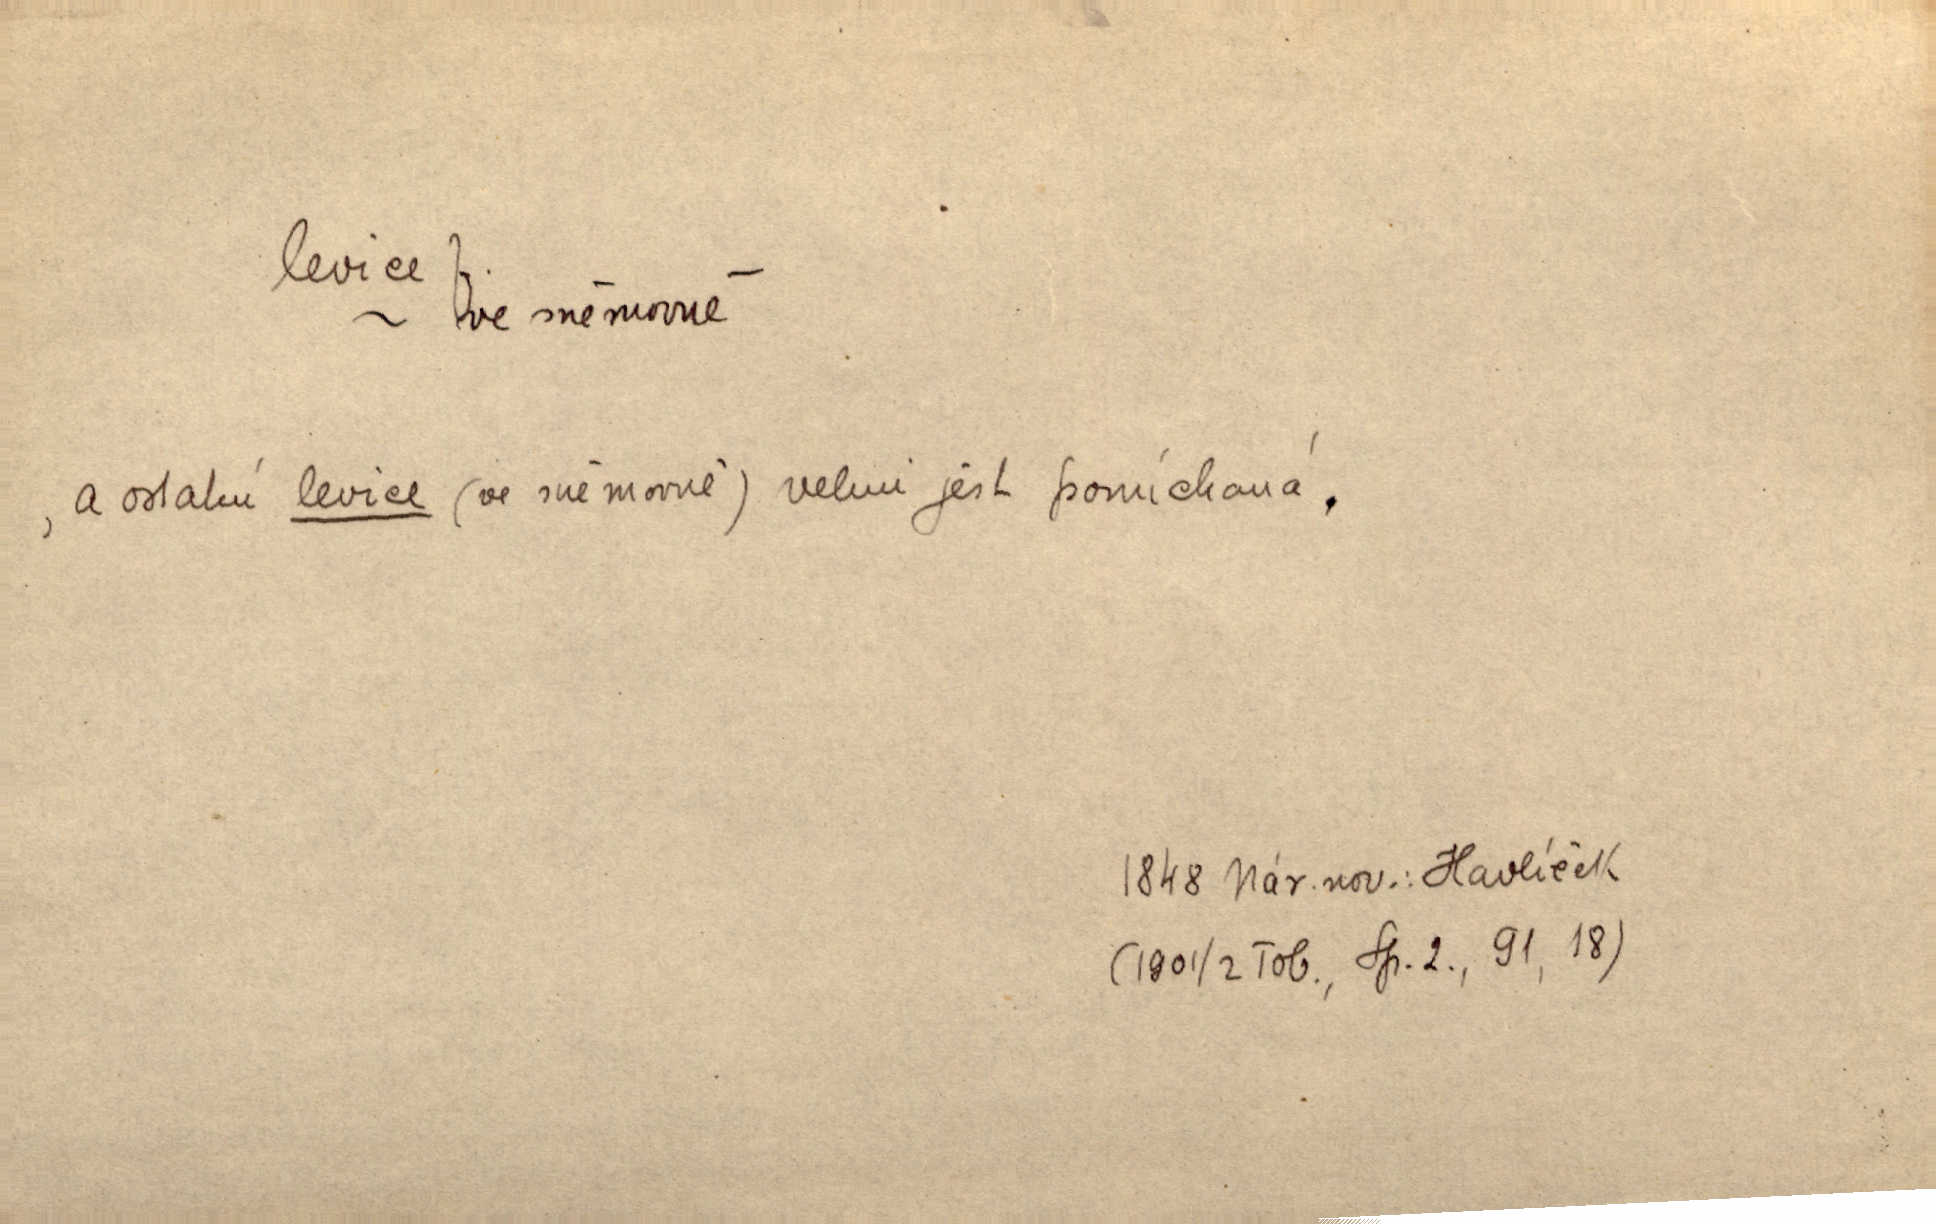 levice
~ ve sněmovně –
, a ostatní levice (ve sněmovně) velmi jest pomíchaná.
1848 Nár. nov.: Havlíček
(1901/2 Tob., Sp. 2., 91, 18)